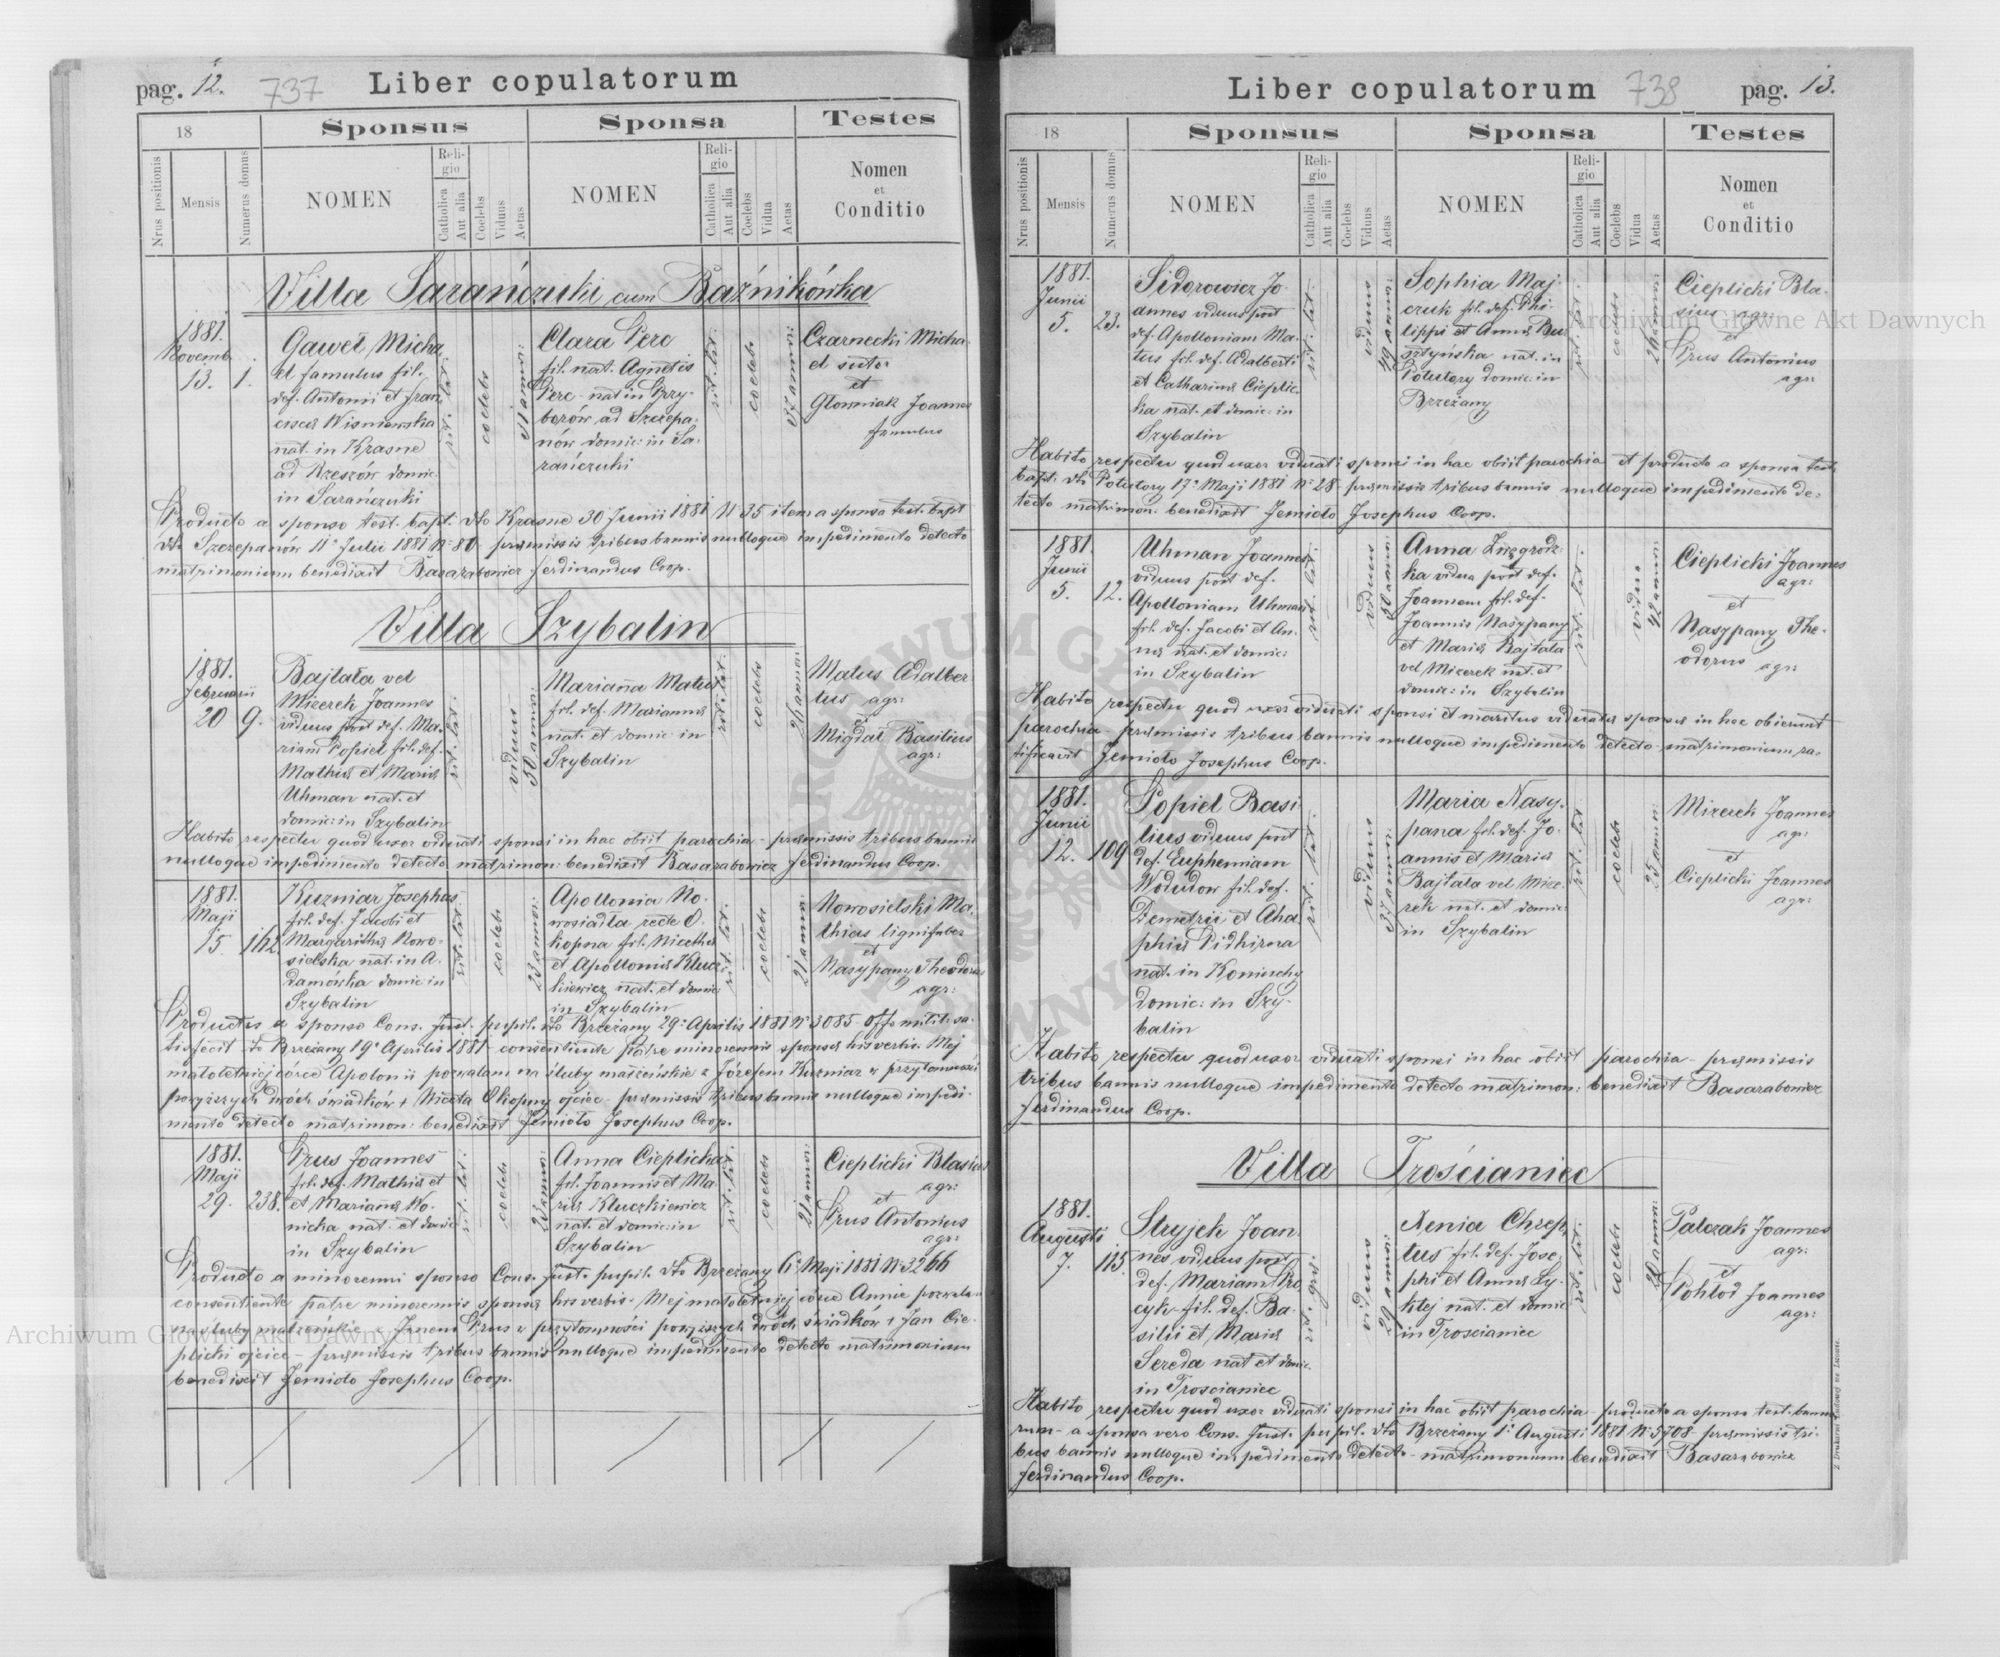 pag. 12.
737
Liber copulatorum
18
Sponsus
Sponsa
Testes
Nrus positionis
Mensis
Numerus domus
NOMEN
Religio
Catholica
Aut alia
Coelebs
Viduus
Aetas
NOMEN
Religio
Catholica
Aut alia
Coelebs
Vidua
Aetas
Nomen
et
Conditio
Villa Sarańczuki cum Baźnikówka
1881.
Novemb.
13.
1.
Gaweł Micha
el famulus fil.
def. Antonii et Fran
cisca Wisniewska
nat. in Krasne
ad Rzeszów domic:
in Sarańczuki
rit. lat.
coelebs
31 annor:
Clara Perc
fil. nat. Agnetis
Perc - nat in Przy-
borów ad Szczepa-
nów domic: in Sa-
rańczuki
rit. lat.
coelebs
37 annor:
Czarnecki Micha
el sutor
et
Głowniak Joannes
famulus
Producto a sponso test. bapt. dto Krasne 30 Junii 1881 N 35 item a sponsa test. bapt
dto Szczepanów 11 Julii 1881 N 80 - præmissis tribus bannis nulloque impedimento detecto
matrimonium benedixit Basarabowicz Ferdinandus Coop.
Villa Szybalin
1881.
Februarii
20
9.
Bajtała vel
Mizerek Joannes
viduus post def. Ma-
riam Popiel fil. def.
Mathiæ et Mariæ
Uhman nat. et
domic: in Szybalin
rit. lat.
viduus
50 annor:
Marianna Matus
fil. def. Mariannæ
nat. et domic in
Szybalin
rit. lat.
coelebs
21 annor:
Matus Adalber
tus agr:
Migdał Basilius
agr:
Habito respectu quod uxor viduati sponsi in hac obiit parochia - præmissis tribus bannis
nulloque impedimento detecto matrimon: benedixit Basarabowicz Ferdinandus Coop.
1881.
Maji
15.
162
Kuzniar Josephus
fil. def. Jacobi et
Margarithæ Nowo-
sielska nat. in A-
damówka domic in
Szybalin
rit. lat.
coelebs
23 annor:
Apollonia No-
wosiadła recte O-
kopna fil. Nicethæ
et Apolloniæ Klucz
kiewicz nat. et domic:
in Szybalin
rit. lat.
coelebs
21 annor:
Nowosielski Ma-
thias lignifaber
et
Nasypany Theodorus
agr:
Productis a sponso Cons. Just. pupil. dto Brzeżany 29 Aprilis 1881 N 3085 - offo milit. sa-
tisfecit dto Brzeżany 19 Aprilis 1881 - consentiente patre minorennis sponsæ his verbis: Mej
małoletniej córce Apolonii pozwalam na śluby małżeńskie z Józefem Kuzniar w przytomności
powyższych dwóch świadków + Niceta Okopny ojciec - præmissis tribus bannis nulloque impedi-
mento detecto matrimon: benedixit Jemioło Josephus Coop.
1881.
Maji
29.
238.
Prus Joannes
fil. def. Mathiæ et
et Mariannæ No-
nicka nat. et domic
in Szybalin
rit. lat.
coelebs
annor:
Anna Cieplicka
fil. Joannis et Ma-
riæ Kluczkiewicz
nat. et domic: in
Szybalin
rit. lat.
coelebs
21 annor:
Cieplicki Blasius
agr:
et
Prus Antonius
agr:
Producto a minorenni sponso Cons. Just. pupil. dto Brzeżany 6 Maji 1881 N 3266
consentiente patre minorennis sponsæ his verbis: Mej małoletniej córce Annie pozwalam
na śluby małżeńskie z Janem Prus w przytomności powyższych dwóch świadków + Jan Cie-
plicki ojciec - præmissis tribus bannis nulloque impedimento detecto matrimonium
benedixit Jemioło Josephus Coop.
Liber copulatorum
738
pag. 13.
18
Sponsus
Sponsa
Testes
Nrus positionis
Mensis
Numerus domus
NOMEN
Religio
Catholica
Aut alia
Coelebs
Viduus
Aetas
NOMEN
Religio
Catholica
Aut alia
Coelebs
Vidua
Aetas
Nomen
et
Conditio
1881.
Junii
5.
23.
Sidorowicz Jo-
annes viduus post
def. Apolloniam Ma-
tus fil. def. Adalberti
et Catharinæ Cieplic-
ka nat. et domic: in
Szybalin
rit. lat.
viduus
49 annor:
Sophia Maj-
czuk fil. def. Phi-
lippi et Annæ Bur
sztyńska nat. in
Potutory domic: in
Brzeżany
rit. lat.
coelebs
26 annor:
Cieplicki Bla-
sius agr:
et
Prus Antonius
agr:
Habito respectu quod uxor viduati sponsi in hac obiit parochia et producto a sponsa test.
bapt. dto Potutory 17 Maji 1881 N 28 - præmissis tribus bannis nulloque impedimento de-
tecto matrimon: benedixit Jemioło Josephus Coop.
1881.
Junii
5.
12.
Uhman Joannes
viduus post def.
Apolloniam Uhman
fil. def. Jacobi et An-
næ nat. et domic:
in Szybalin
rit. lat.
viduus
50 annor:
Anna Zwzgrodz-
ka vidua post def.
Joannem fil. def.
Joannis Nasypany
et Mariæ Bajtała
vel Mizerek nat. et
domic: in Szybalin
rit. lat.
vidua
42 annor:
Cieplicki Joannes
agr:
et
Nasypany The-
odorus agr:
Habito respectu quod uxor viduati sponsi et maritus viduatæ sponsæ in hac obierunt
parochia - præmissis tribus bannis nulloque impedimento detecto matrimonium ra-
tificavit Jemioło Josephus Coop.
1881.
Junii
12.
109
Popiel Basi-
lius viduus post
def. Euphemiam
Wodudow fil. def.
Demetrii et Aha
phiæ Pidhirna
nat. in Koniuchy
domic: in Szy-
balin
rit. lat.
viduus
37 annor:
Maria Nasy-
pana fil. def. Jo-
annis et Mariæ
Bajtała vel Mize-
rek nat. et domic:
in Szybalin
rit. lat
coelebs
25 annor:
Mizerek Joannes
agr:
et
Cieplicki Joannes
agr:
Habito respectu quod uxor viduati sponsi in hac obiit parochia - præmissis
tribus bannis nulloque impedimento detecto matrimon: benedixit Basarabowicz
Ferdinandus Coop.
Villa Trościaniec
1881.
Augusti
7.
115.
Stryjek Joan-
nes viduus post
def. Mariam Pro
cyk fil. def. Ba-
silii et Mariæ
Sereda nat et domic.
in Troscianiec
rit. græc.
viduus
29 annor:
Xenia Chrep-
tus fil. def. Jose-
phi et Annæ Ly-
ktej nat. et domic
in Troscianiec
rit. lat.
coelebs
20 annor:
Palczak Joannes
agr:
et
Pohłod Joannes
agr:
Habito respectu quod uxor viduati sponsi in hac obiit parochia - producto a sponso test. banno
rum - a sponsa vero Cons. Just. pupil. dto Brzeżany 1 Augusti 1881 N 5708 præmissis tri-
bus bannis nulloque impedimento detecto - matrimonium benedixit Basarabowicz
Ferdinandus Coop.
Z Drukarni Ludowej we Lwowie.
Archiwum Główne Akt Dawnych
Archiwum Główne Akt Dawnych